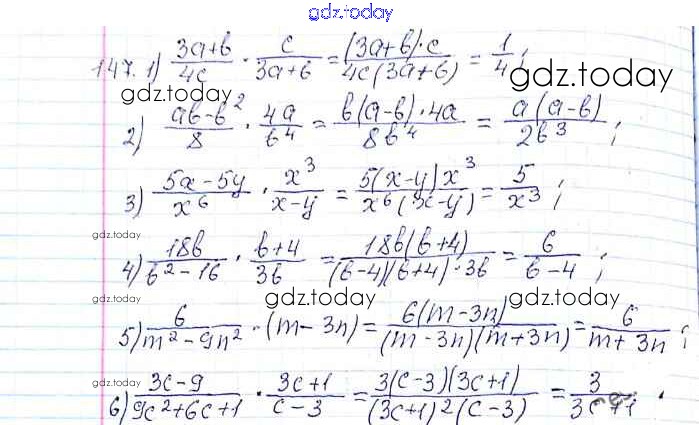 gdz.today
147. 1) (3a+b)/(4c) · c/(3a+b) = ((3a+b)·c)/(4c(3a+b)) = 1/4;
gdz.today
gdz.today
2) (ab-b²)/8 · 4a/b⁴ = (b(a-b)·4a)/(8b⁴) = (a(a-b))/(2b³);
gdz.today
3) (5x-5y)/x⁶ · x³/(x-y) = (5(x-y)x³)/(x⁶(x-y)) = 5/x³;
gdz.today
gdz.today
4) 18b/(b²-16) · (b+4)/(3b) = (18b(b+4))/((b-4)(b+4)·3b) = 6/(b-4);
gdz.today
gdz.today
5) 6/(m²-9n²) · (m-3n) = (6(m-3n))/((m-3n)(m+3n)) = 6/(m+3n);
gdz.today
gdz.today
6) (3c-9)/(9c²+6c+1) · (3c+1)/(c-3) = (3(c-3)(3c+1))/((3c+1)²(c-3)) = 3/(3c+1).